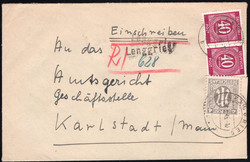 Einschreiben
40
An das
R/ Lenggries
628
40
Amtsgericht
Geschäftsstelle
Karlstadt/Main